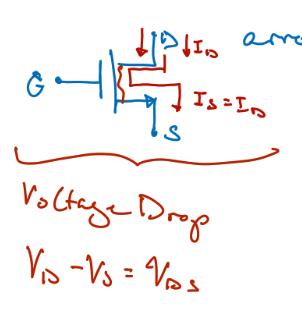 D I_D arro
G
I_S = I_D
S
Voltage Drop
V_D - V_S = V_DS